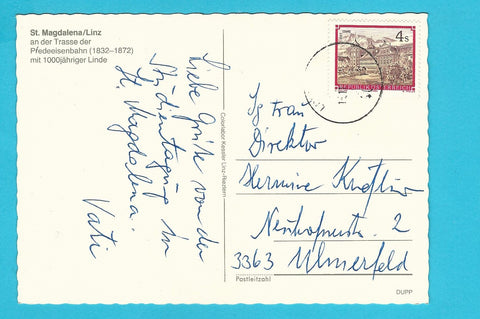 St. Magdalena/Linz
an der Trasse der
Pfedeeisenbahn (1832–1872)
mit 1000jähriger Linde
Liebe Grüße von der
Studientagung in
St. Magdalena.
Vati
Colorlabor Kepplar Linz-Reidern
4 S
REPUBLIK ÖSTERREICH
Frau
Direktor
Hermine
2
3363 Ulmerfeld
Postleitzahl
DUPP